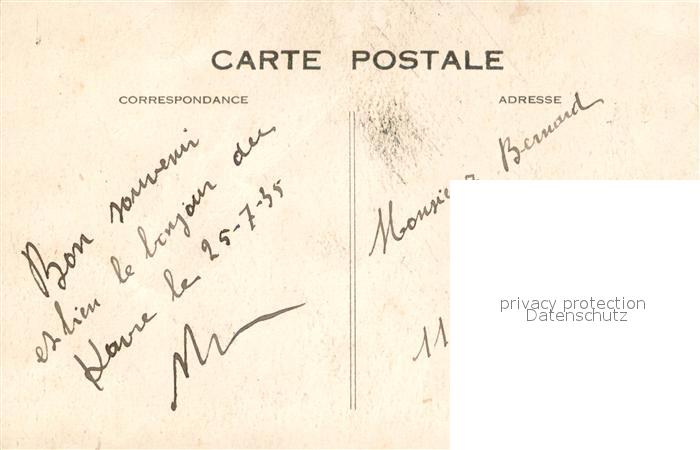 CARTE POSTALE
CORRESPONDANCE
ADRESSE
Bon souvenir
et bien le bonjour du
Havre le 25-7-35
Monsieur Bernard
11
privacy protection
Datenschutz